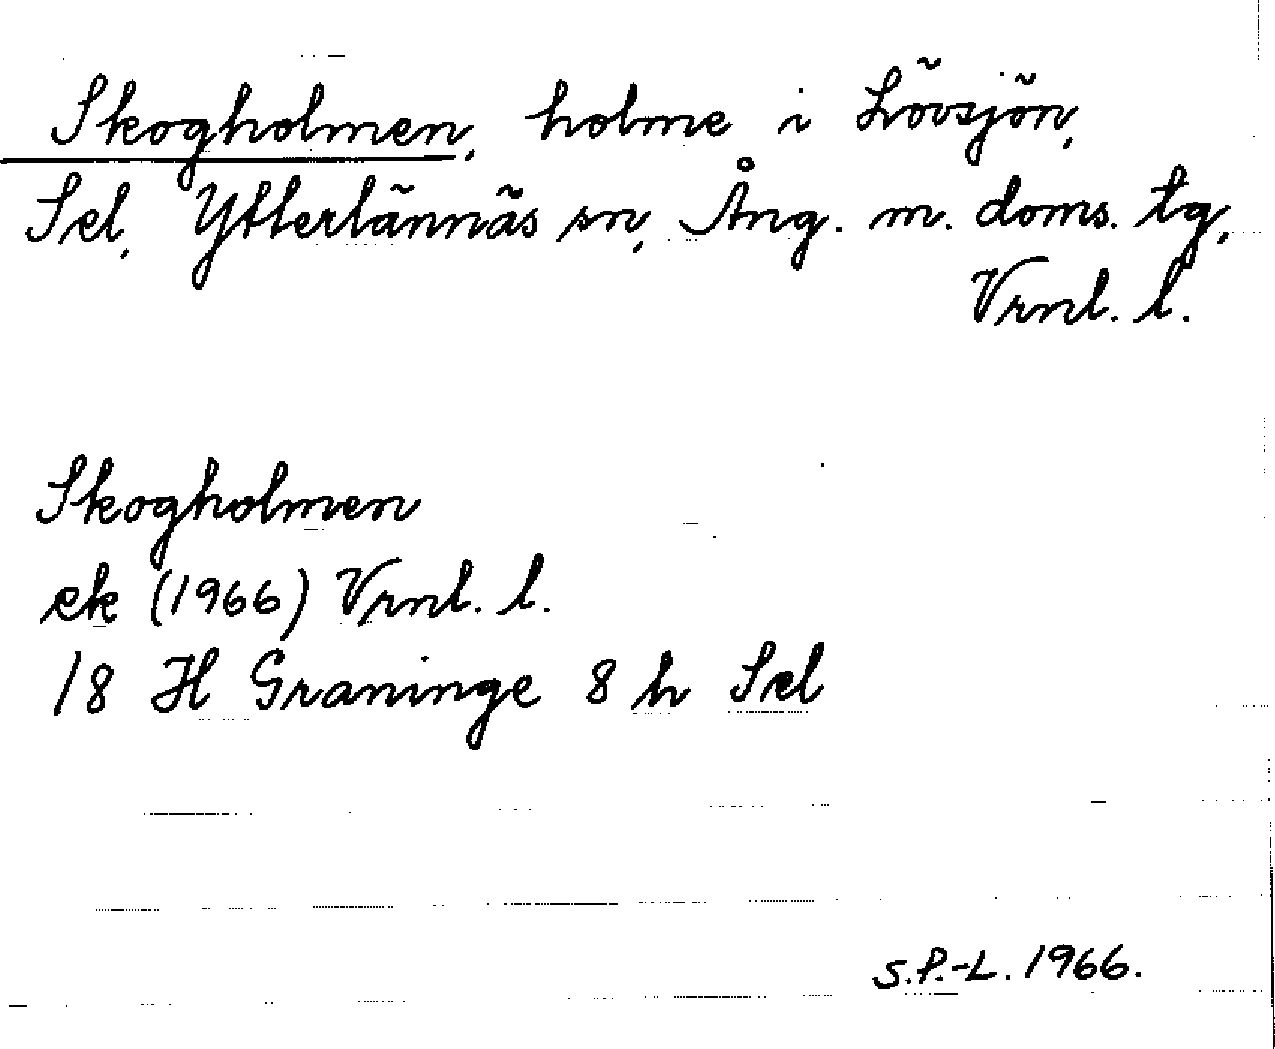 Skogholmen, holme i Lövsjön,
Sel, Ytterlännäs sn, Ång. m. doms. tg,
Vrnl. l.
Skogholmen
ek (1966) Vrnl. l.
18 H Graninge 8 h Sel
S.P.-L. 1966.